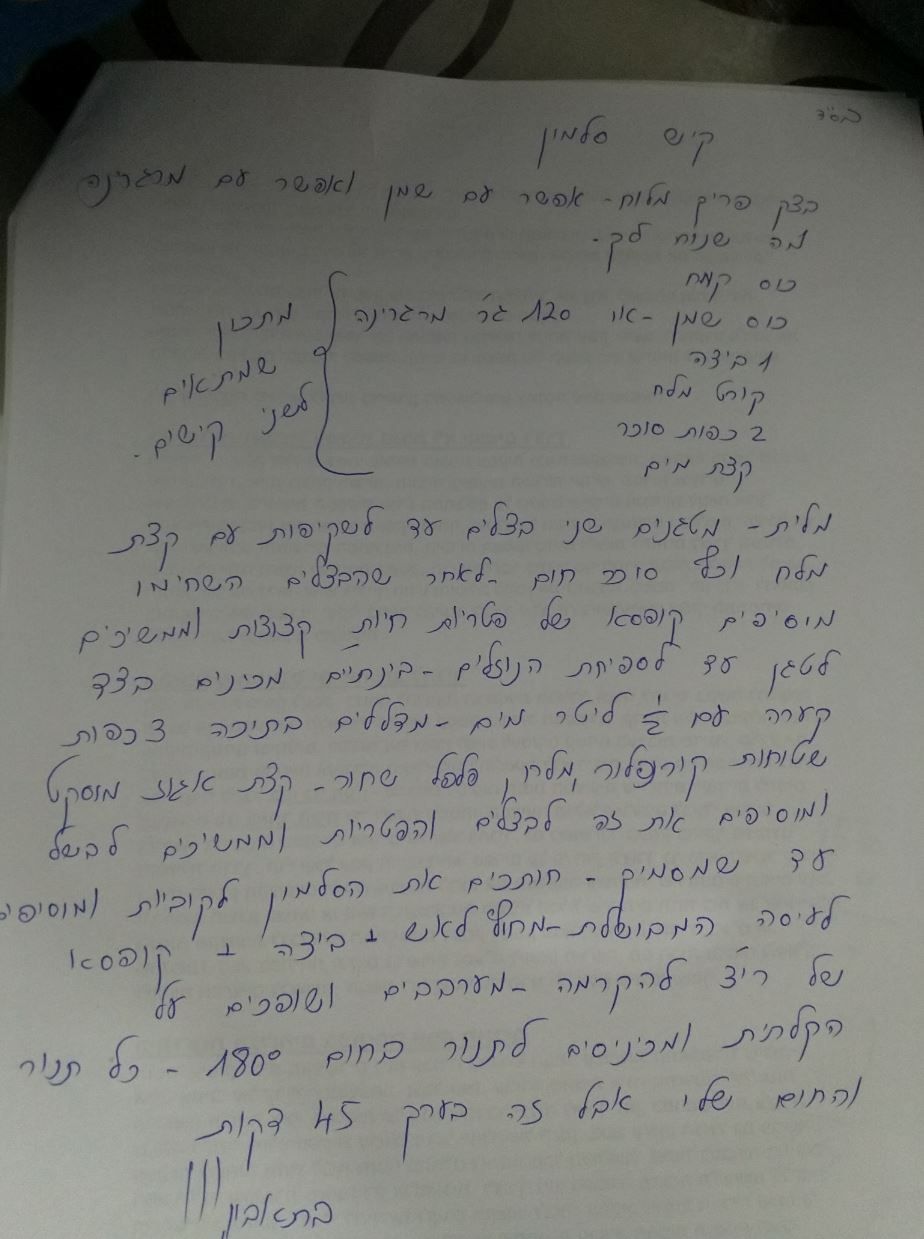 בס"ד
קיש סלמון
בצק פריך מלוח - אפשר עם שמן ואפשר עם מרגרינה
מה שנוח לך.
כוס קמח
כוס שמן - או 120 גר' מרגרינה
1 ביצה
קורט מלח
2 כפות סוכר
קצת מים
מתכון
שמתאים
לשני קישים.
מלית - מטגנים שני בצלים עד לשקיפות עם קצת
מלח וכף סוכר חום - לאחר שהבצלים השחימו
מוסיפים קופסא של פטריות חיות קצוצות וממשיכים
לטגן עד לספיחת הנוזלים - בינתיים מכינים בצד
קערה עם 1/2 ליטר מים - מדללים בתוכה 3 כפות
שטוחות קורנפלור, מלח, פלפל שחור - קצת אגוז מוסקט
ומוסיפים את זה לבצלים והפטריות וממשיכים לבשל
עד שמסמיך - חותכים את הסלמון לקוביות ומוסיפים
לעיסה המבושלת - מחוץ לאש + ביצה + קופסא
של ריצ' להקרמה - מערבבים ושופכים על
הקלתית ומכניסים לתנור בחום 180° - כל תנור
והחום שלו אבל זה בערך 45 דקות
בתאבון!!!